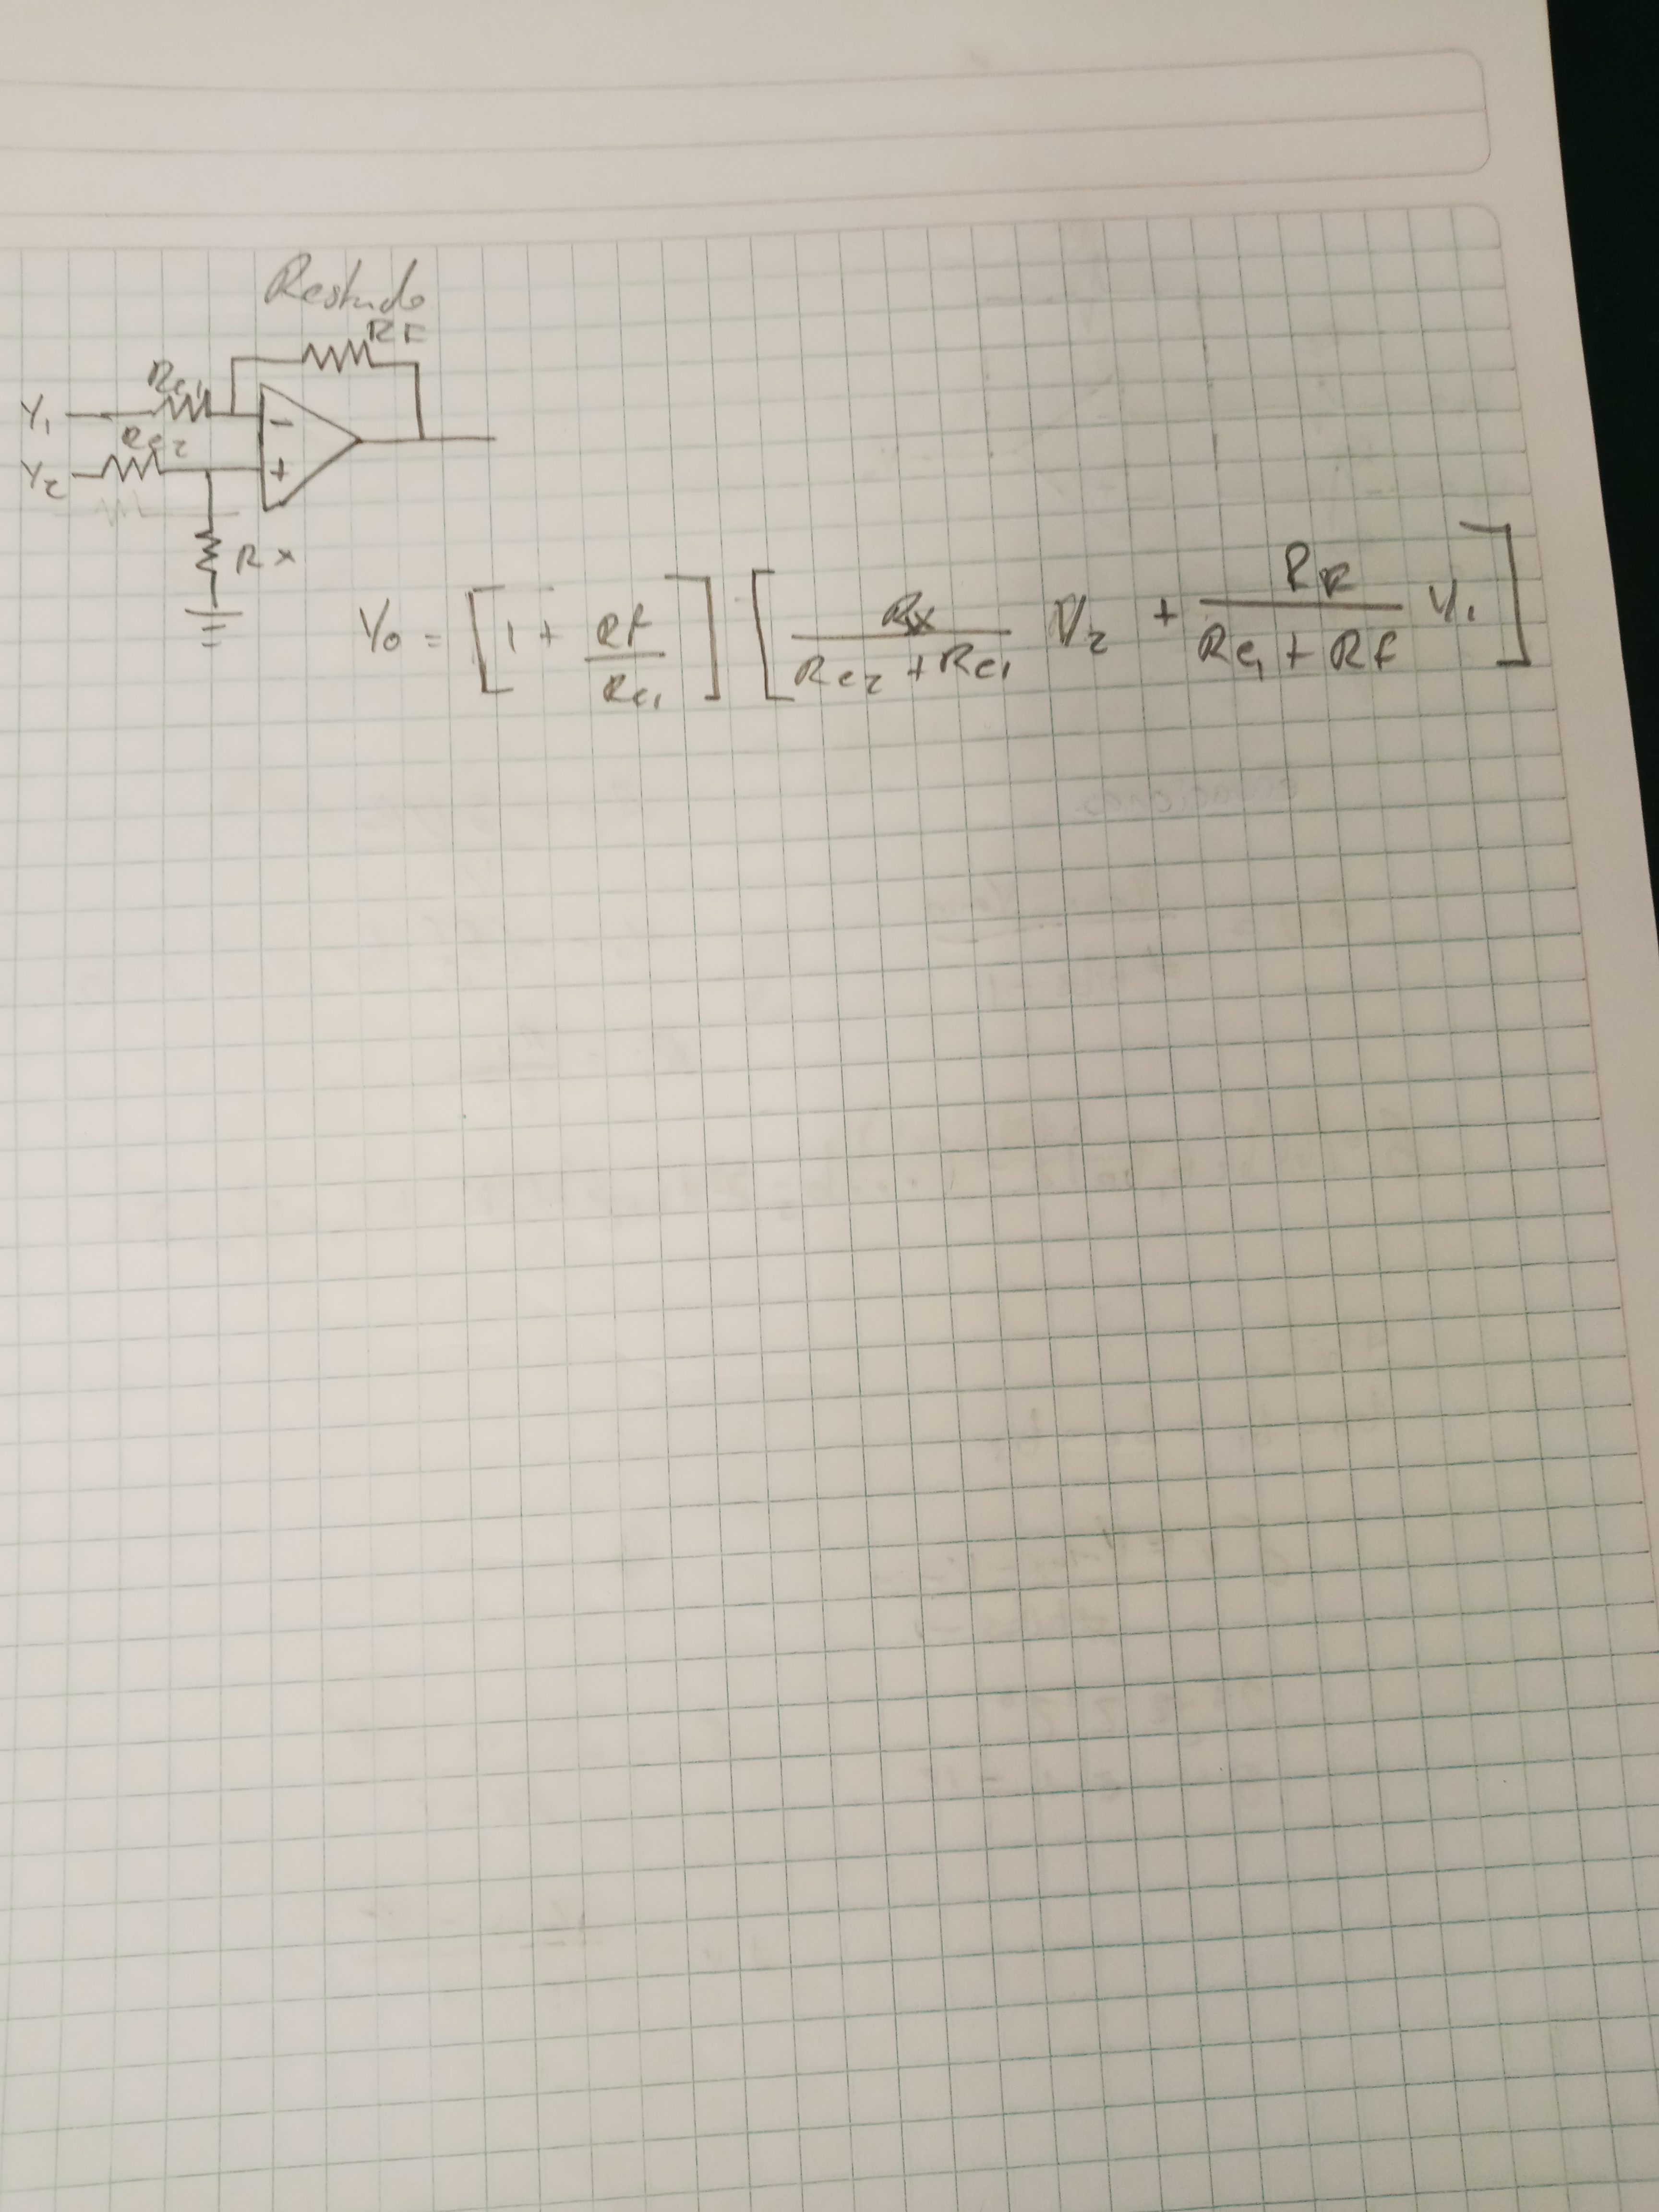 Restado
RF
Re1
V1
Re2
V2
-
+
Rx
Vo = [1 + RF/Re1] [Rx/(Re2 + Re1) V2 + RF/(Re1 + RF) V1]